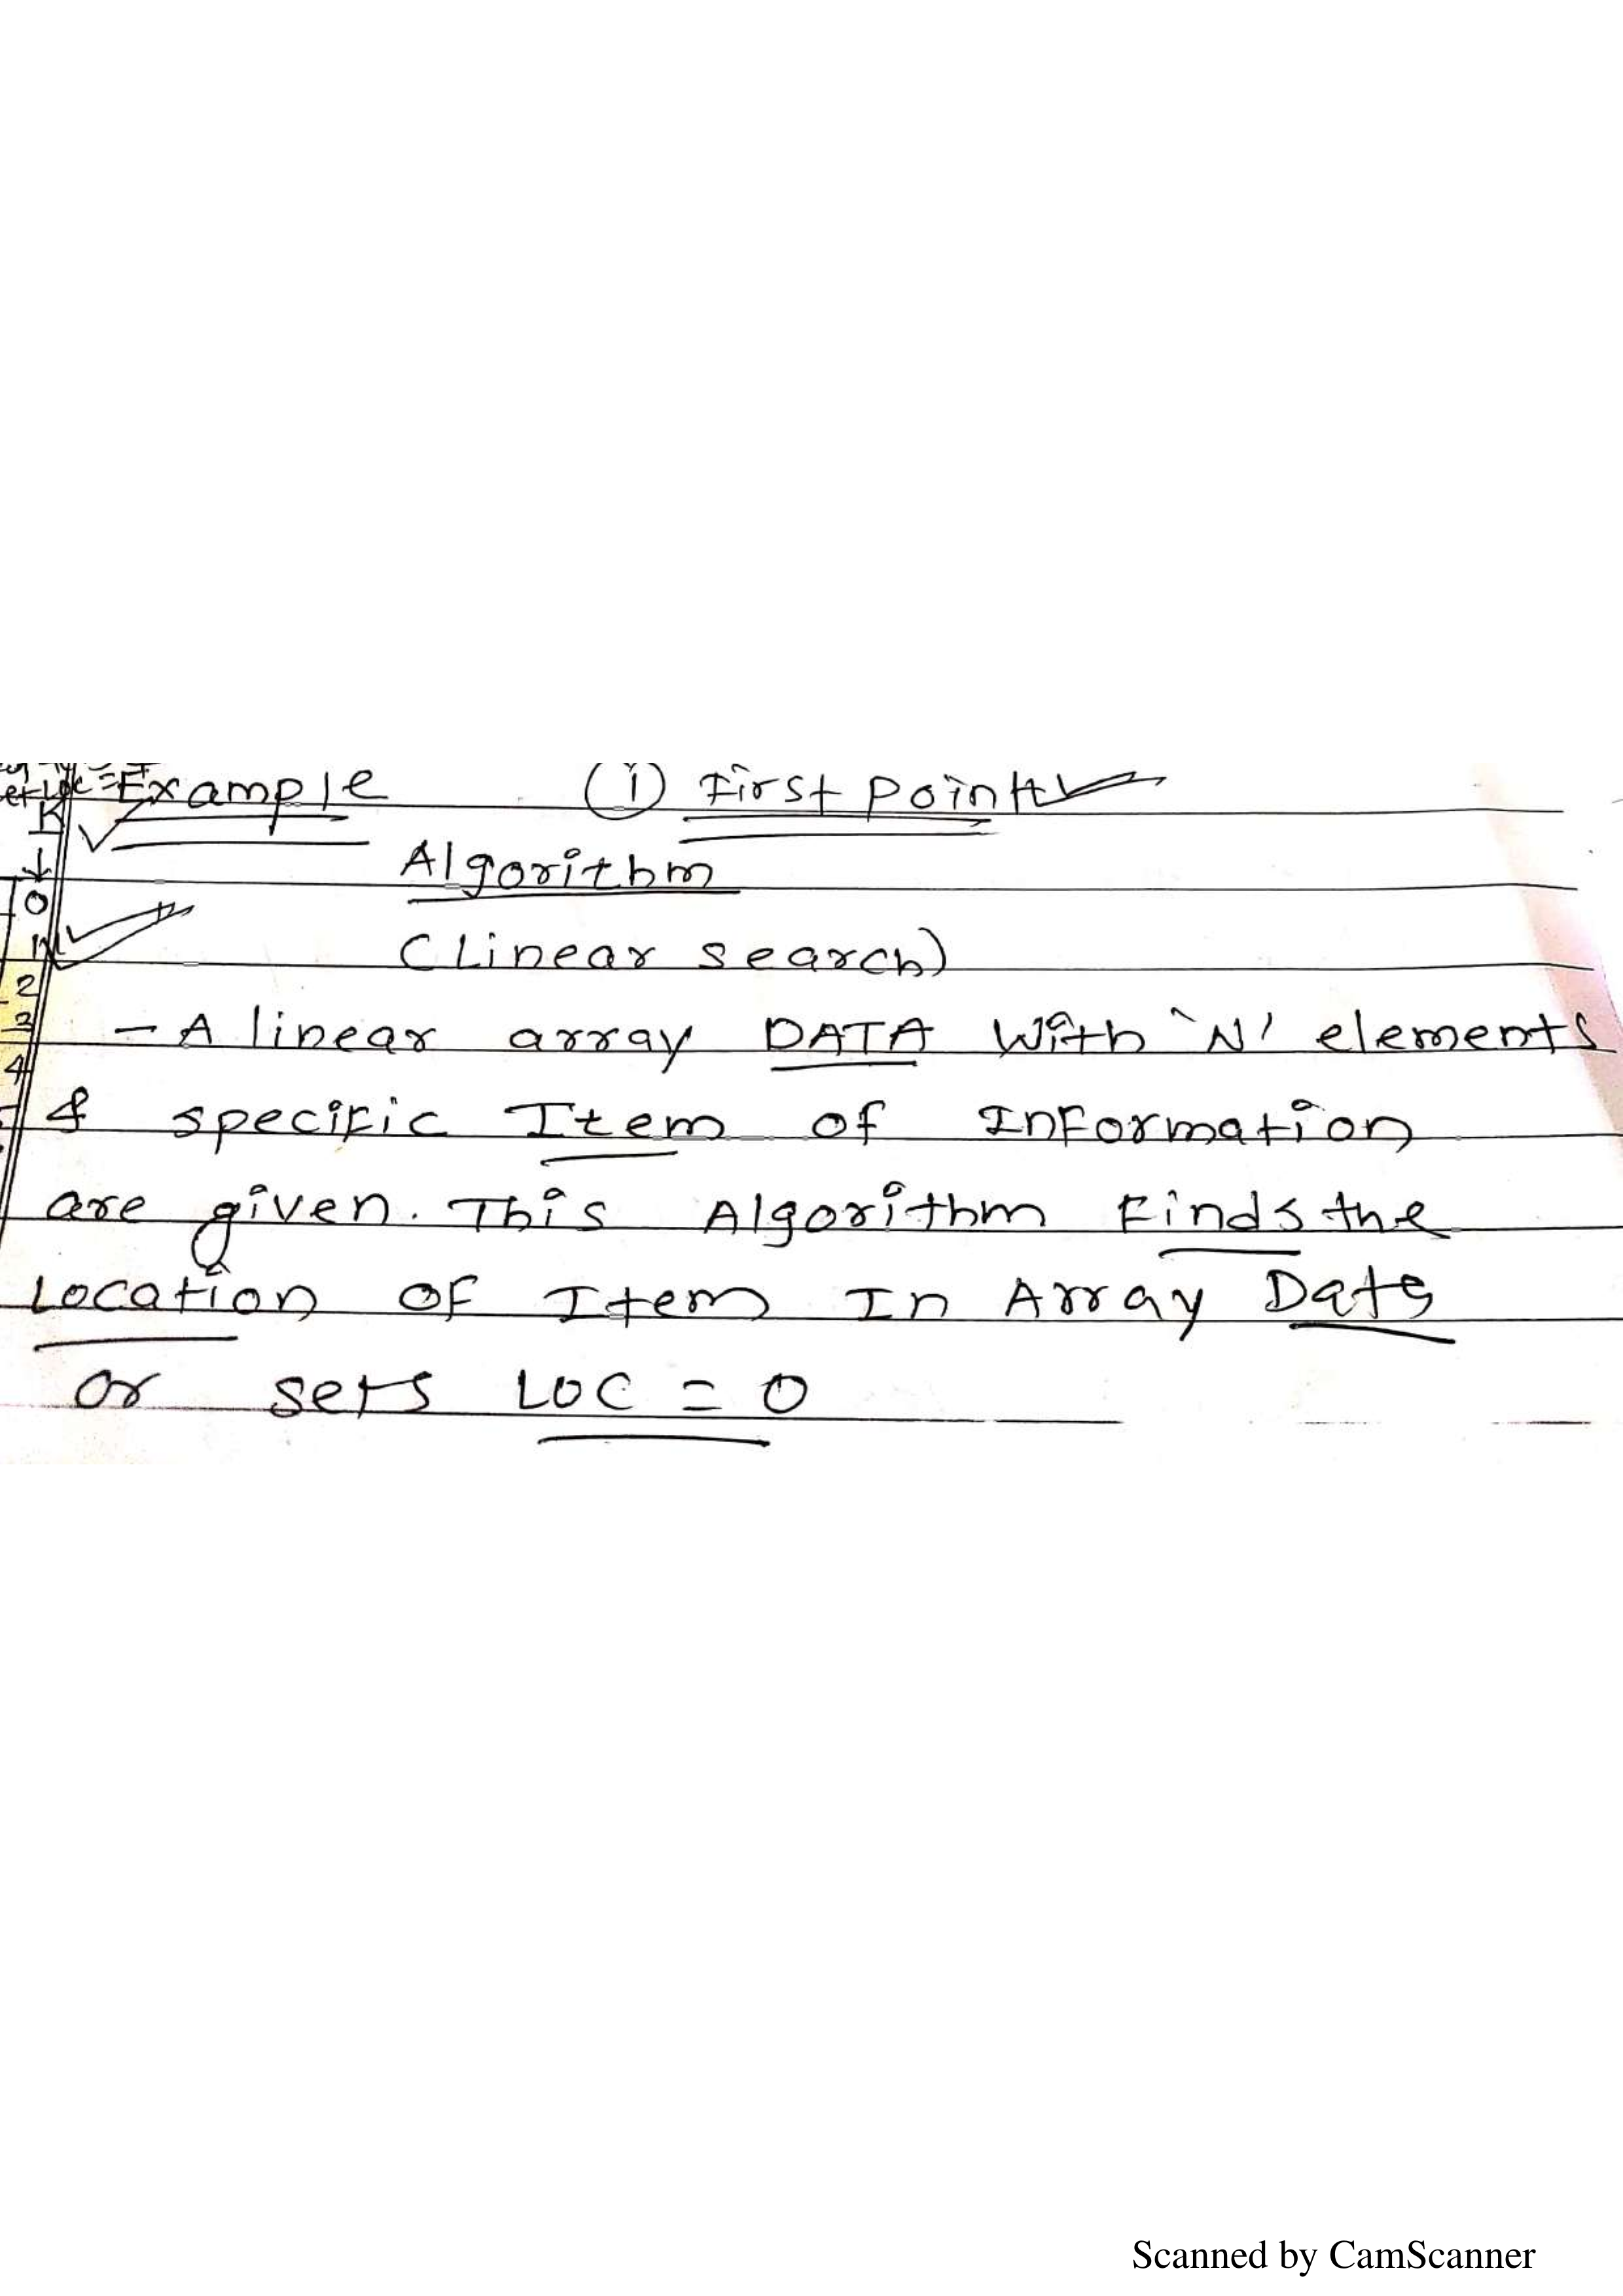 Example (1) First point
Algorithm
(Linear search)
- A linear array DATA with `N' elements
& specific Item of Information
are given. This Algorithm Finds the
Location of Item In Array Data
or sets LOC = 0
K
↓
0
1
2
3
4
Scanned by CamScanner